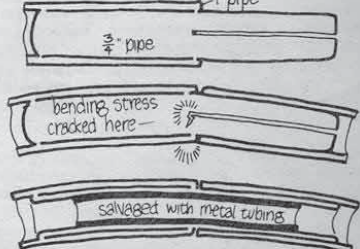 1" pipe
3/4" pipe
bending stress
cracked here—
salvaged with metal tubing